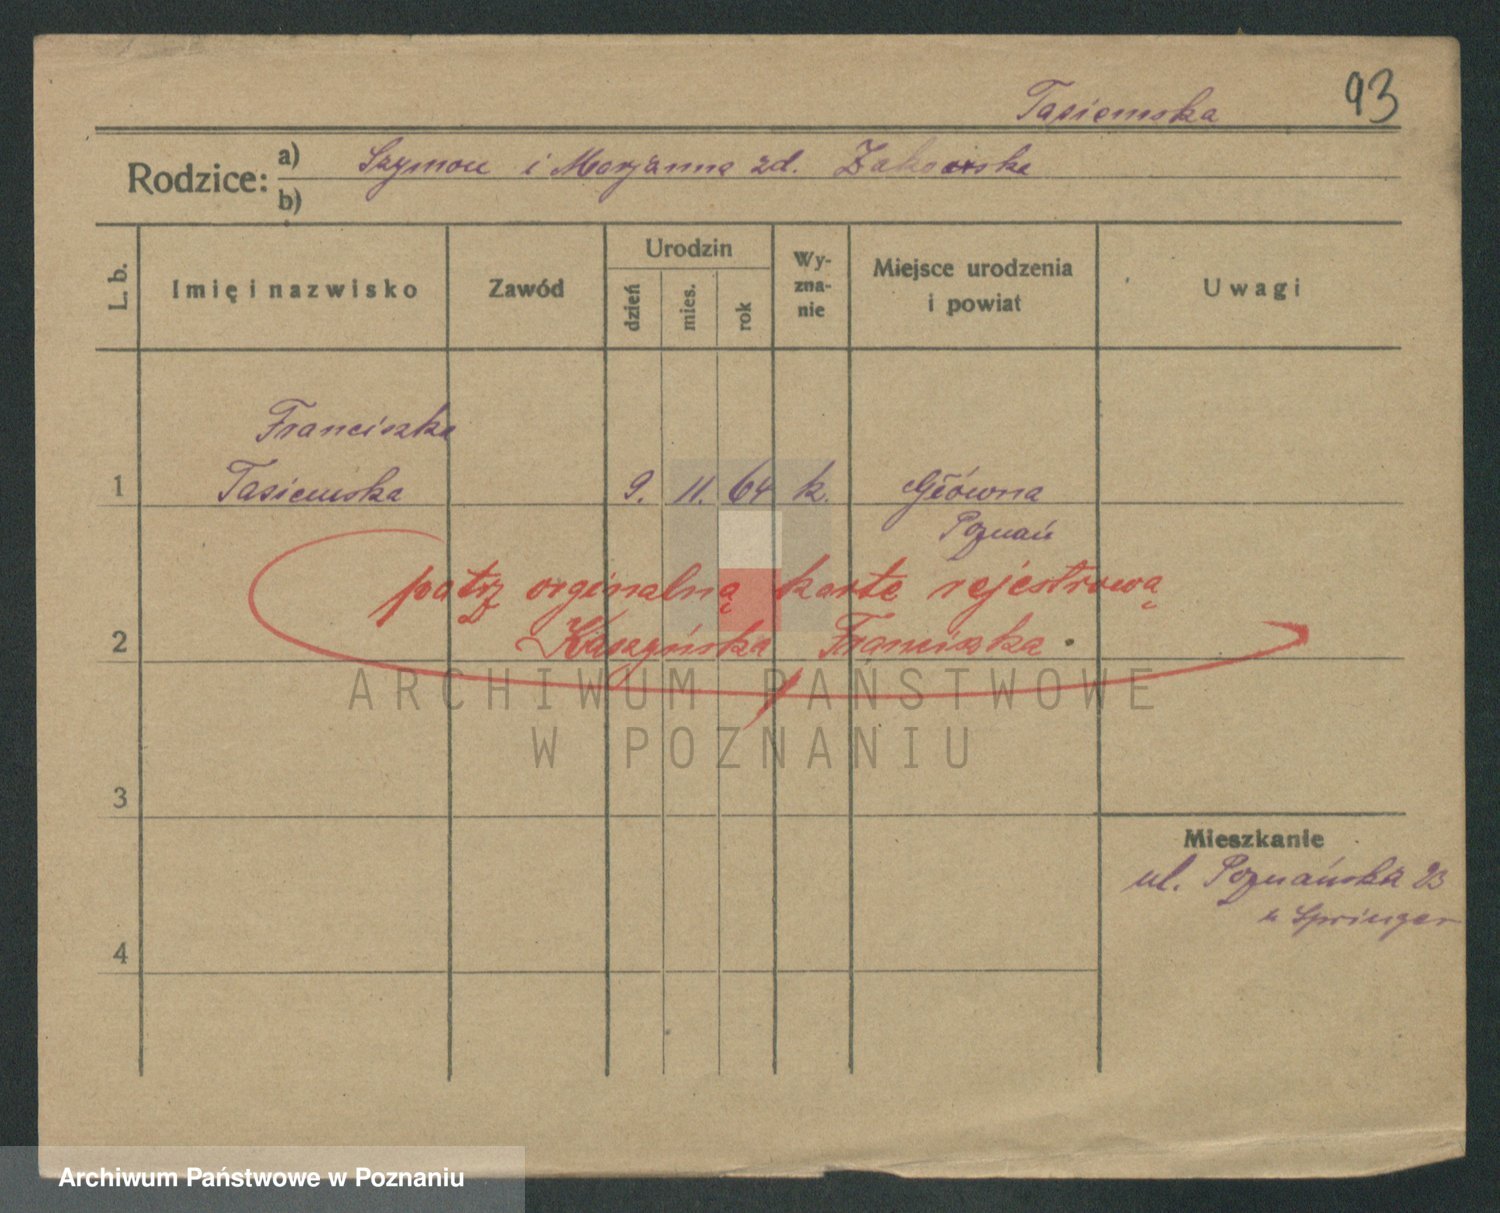 Tasiemska 93
Rodzice: a) Szymon i Marjanna zd.
b)
L. b.
Imię i nazwisko
Zawód
Urodzin
dzień
mies.
rok
Wy-
zna-
nie
Miejsce urodzenia
i powiat
Uwagi
Franciszka
1 Tasiemska 9. 11. 64 k. Główna
Poznań
patrz orginalną kartę rejestrową
2 Franciszka
ARCHIWUM PAŃSTWOWE
W POZNANIU
3
Mieszkanie
ul. Poznańska 23
Springer
4
Archiwum Państwowe w Poznaniu